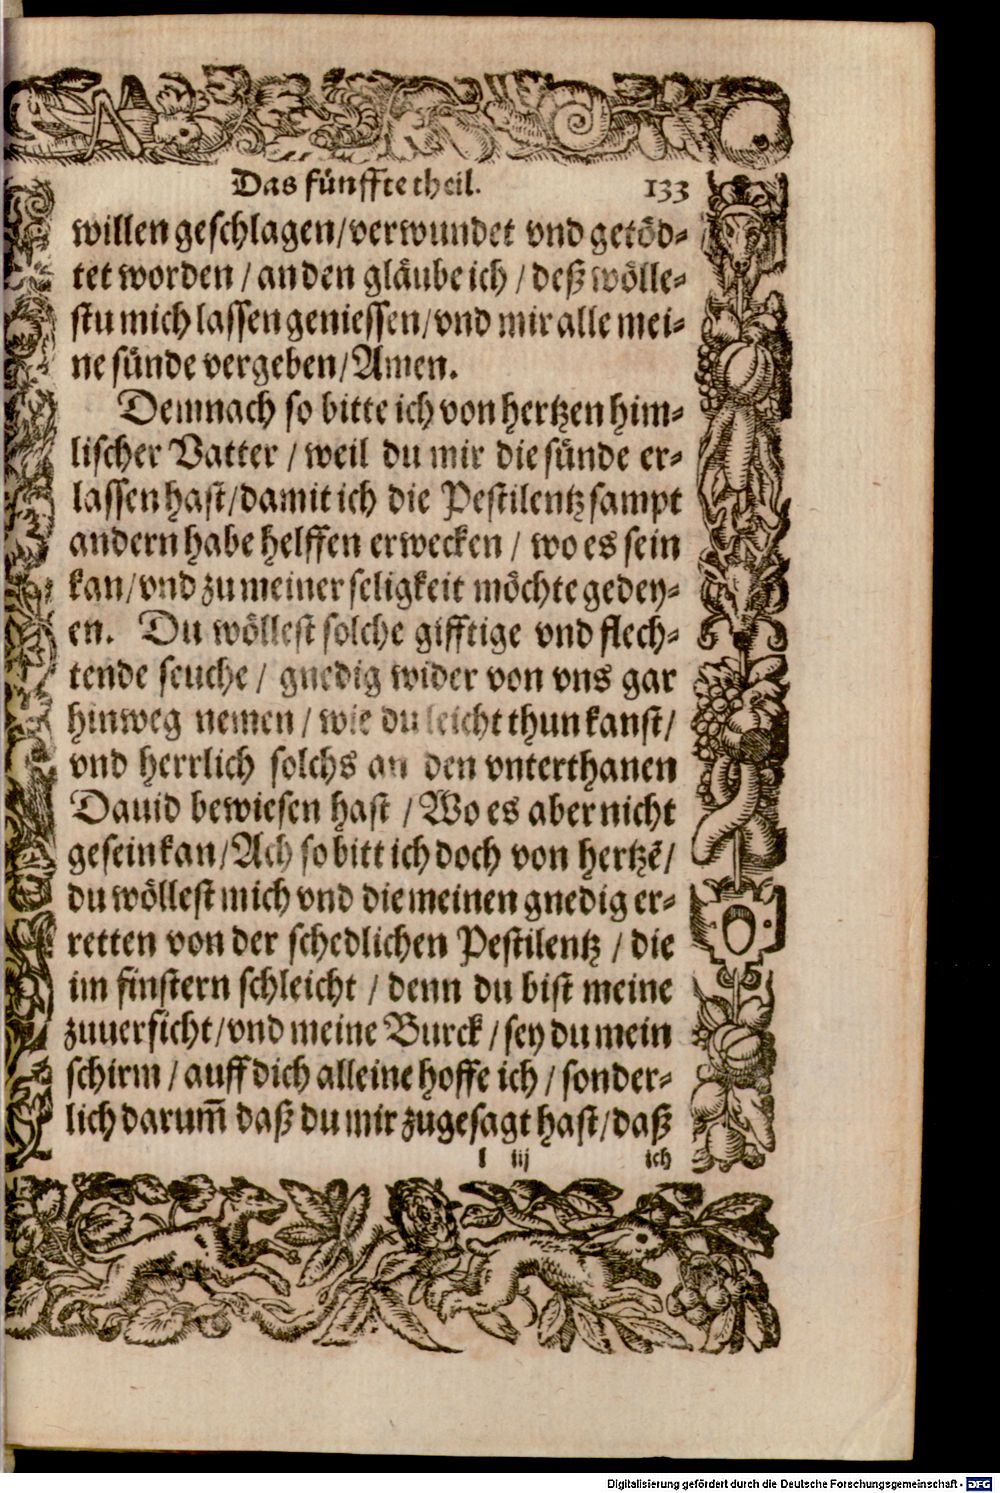 Das fünffte theil. 133
willen geschlagen/verwundet vnd getöd-
tet worden / an den gläube ich / deß wölle-
stu mich lassen geniessen/vnd mir alle mei-
ne sünde vergeben/Amen.
Demnach so bitte ich von hertzen him-
lischer Vatter / weil du mir die sünde er-
lassen hast/damit ich die Pestilentz sampt
andern habe helffen erwecken / wo es sein
kan/vnd zu meiner seligkeit möchte gedey-
en. Du wöllest solche gifftige vnd flech-
tende seuche / gnedig wider von vns gar
hinweg nemen / wie du leicht thun kanst/
vnd herrlich solchs an den vnterthanen
Dauid bewiesen hast / Wo es aber nicht
gesein kan/Ach so bitt ich doch von hertzē/
du wöllest mich vnd die meinen gnedig er-
retten von der schedlichen Pestilentz / die
im finstern schleicht / denn du bist meine
zuuersicht/vnd meine Burck / sey du mein
schirm / auff dich alleine hoffe ich / sonder-
lich darum̅ daß du mir zugesagt hast/daß
l iij ich
Digitalisierung gefördert durch die Deutsche Forschungsgemeinschaft - DFG